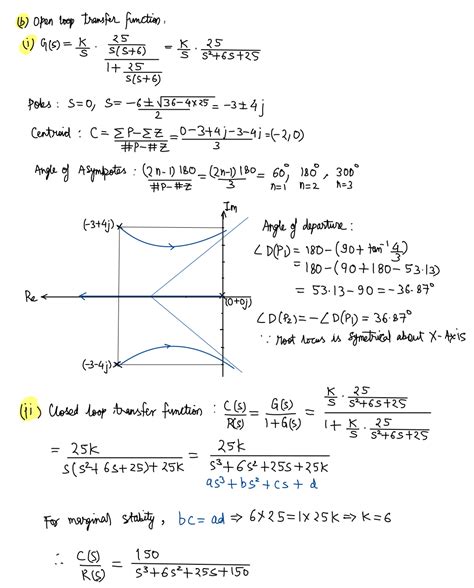 (b) Open loop transfer function.
(i) G(s) = K/S · (25/(s(s+6)))/(1 + 25/(s(s+6))) = K/S · 25/(s²+6s+25)
Poles : S=0, S = (-6 ± √(36-4×25))/2 = -3 ± 4j
Centroid : C = (ΣP-ΣZ)/(#P-#Z) = (0-3+4j-3-4j)/3 = (-2,0)
Angle of Asymptotes : (2n-1)180/(#P-#Z) = (2n-1)180/3 = 60°, 180°, 300°
n=1 n=2 n=3
Im
(-3+4j)
Re
(0+0j)
(-3-4j)
Angle of departure :
∠D(P₁) = 180-(90+tan⁻¹ 4/3)
= 180-(90+180-53.13)
= 53.13-90 = -36.87°
∠D(P₂) = -∠D(P₁) = 36.87°
∵ Root locus is symetrical about X-Axis
(ii) Closed loop transfer function : C(s)/R(s) = G(s)/(1+G(s)) = (K/S · 25/(s²+6s+25))/(1 + K/S · 25/(s²+6s+25))
= 25K/(s(s²+6s+25)+25K) = 25K/(s³+6s²+25s+25K)
as³+bs²+cs+d
For marginal stability, bc=ad ⇒ 6×25=1×25K ⇒ K=6
∴ C(s)/R(s) = 150/(s³+6s²+25s+150)